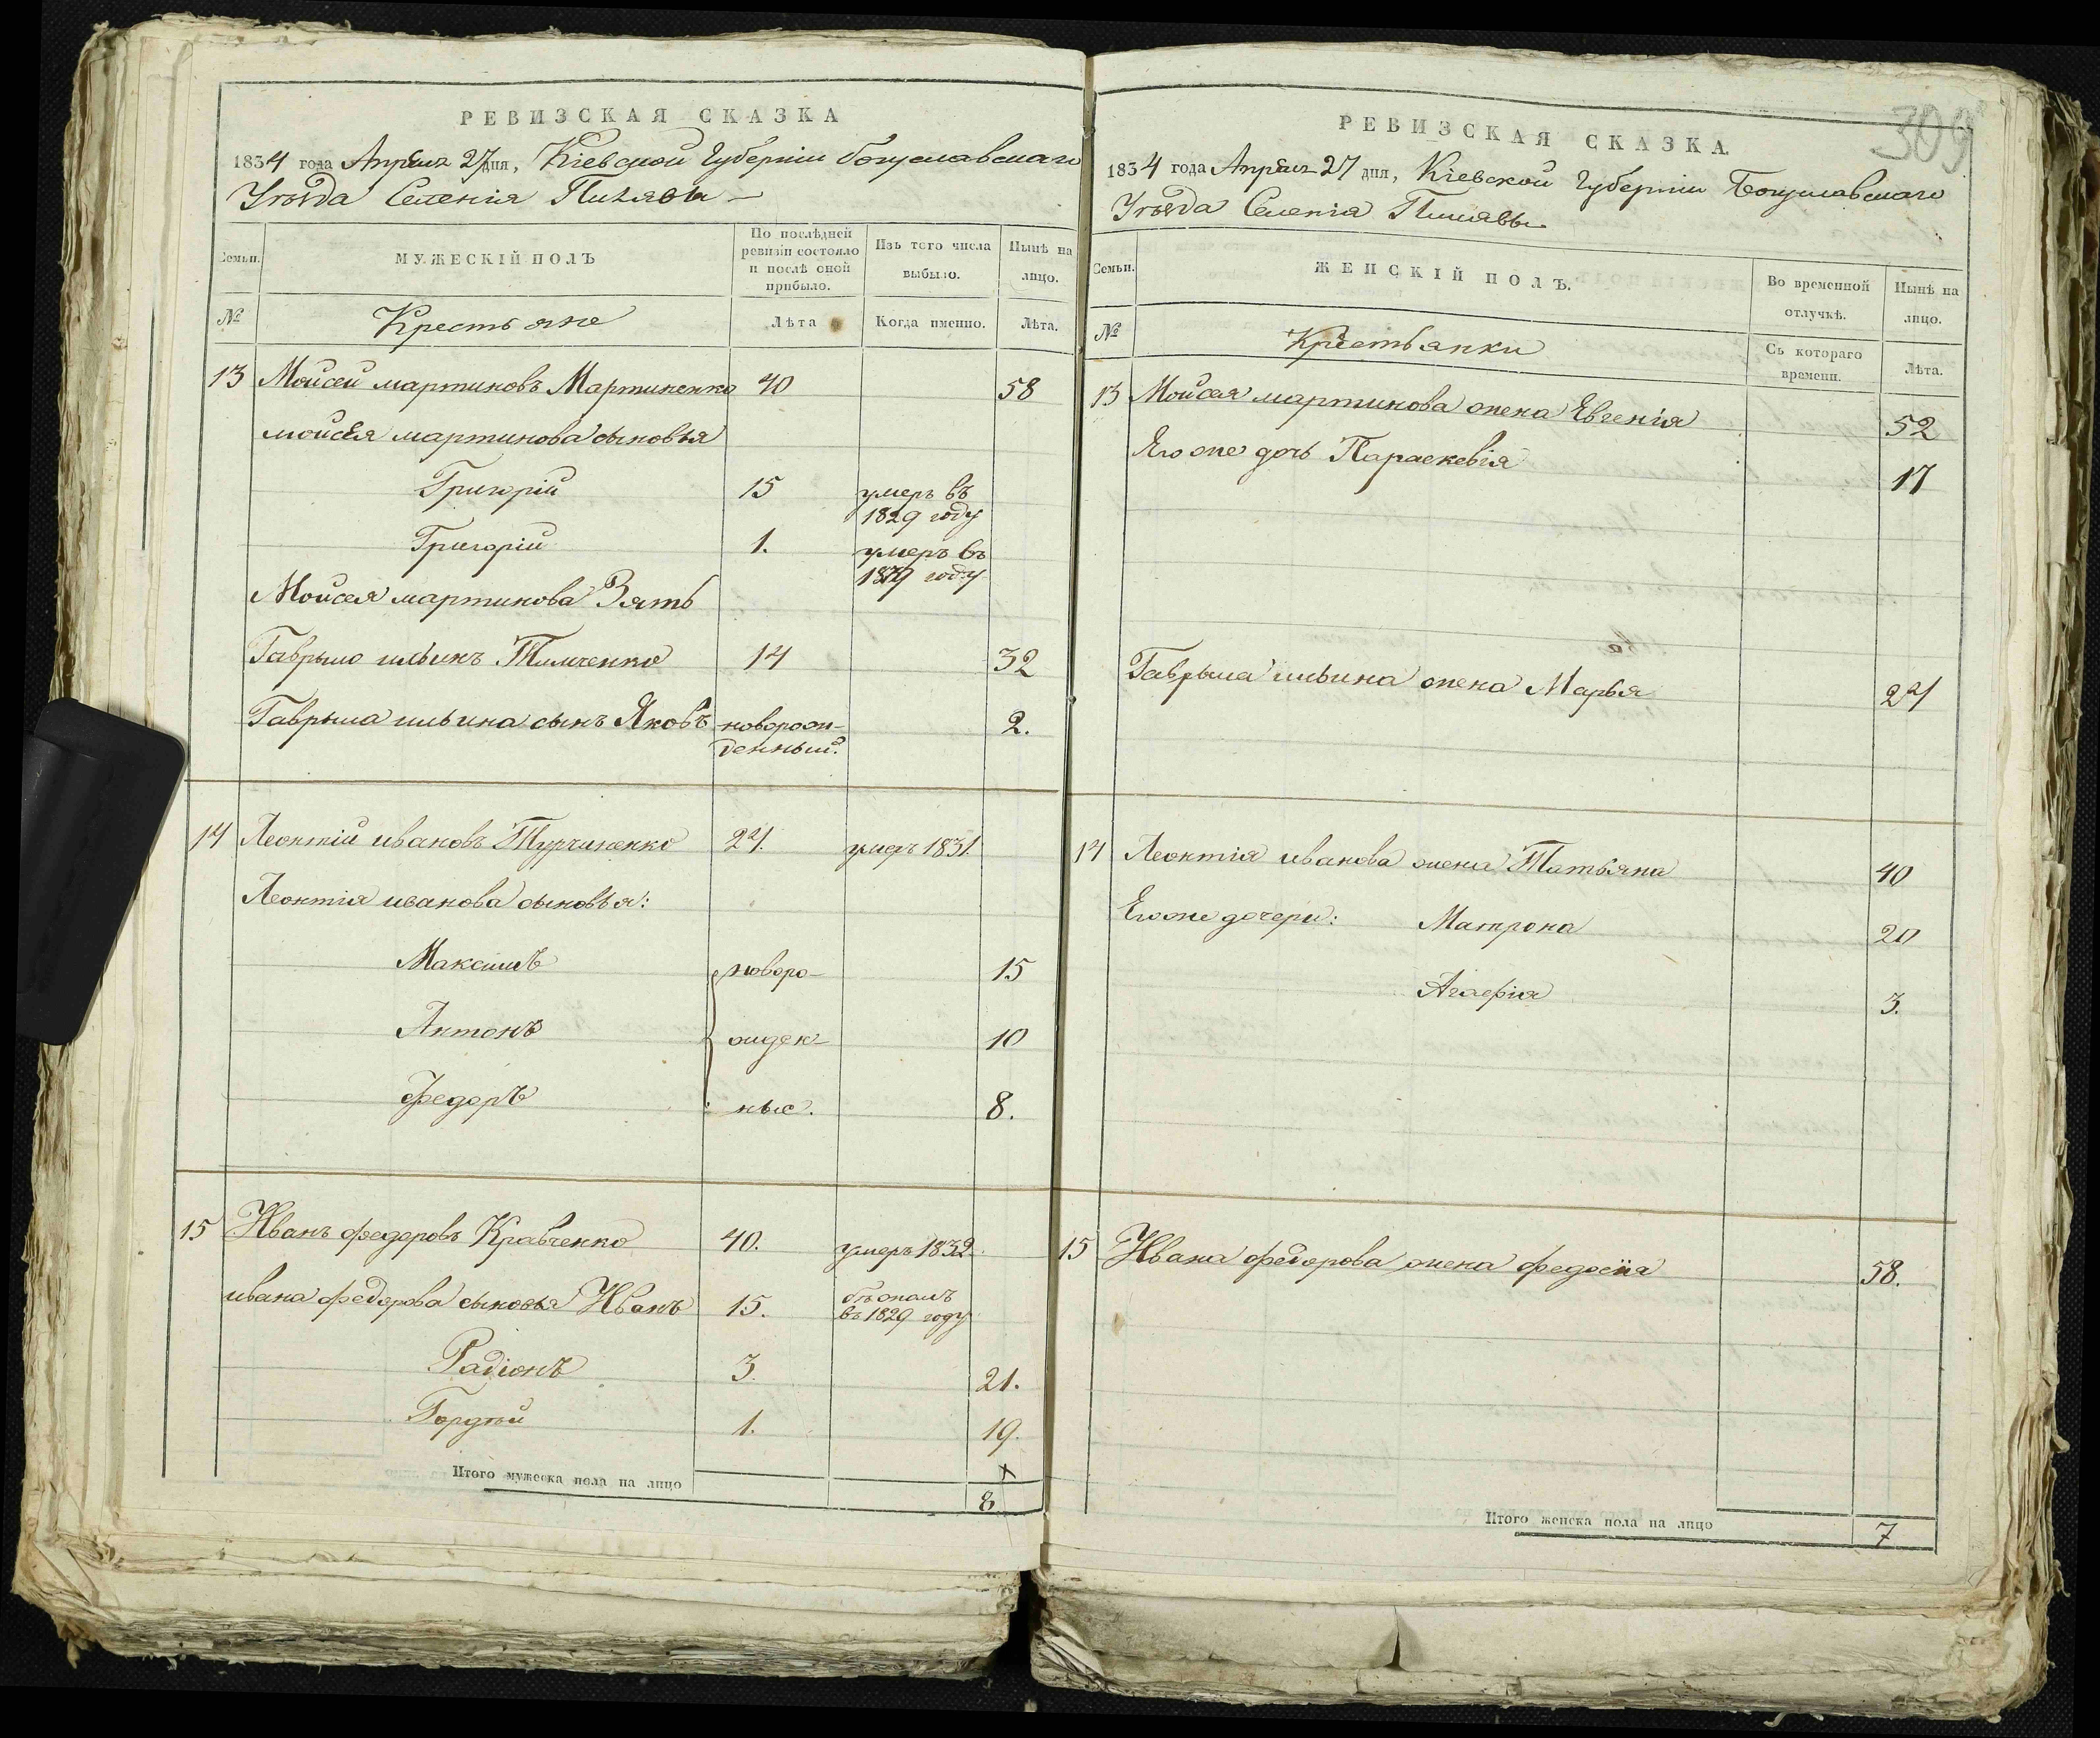 РЕВИЗСКАЯ СКАЗКА
1834 года Апреля 27 дня, Кіевской Губерніи богуславскаго
Уѣзда Селенія Пилявы
Семьи.
МУЖЕСКІЙ ПОЛЪ
По послѣдней ревизіи состояло и послѣ оной прибыло.
Изъ того числа выбыло.
Нынѣ на лицо.
№
Крестьяне
Лѣта
Когда именно.
Лѣта.
13 Мойсей мартиновъ Мартиненко 40 58
мойсея мартинова сыновья
Григорій 15 умеръ въ
1829 году
Григорій 1. умеръ въ
1829 году
Мойсея мартинова Зять
Гаврыло ильинъ Тимченко 14 32
Гаврыла ильина сынъ Яковъ новорож- 2.
денный.
14 Леонтій ивановъ Турчиненко 24. умеръ 1831.
Леонтія иванова сыновья:
Максимъ новоро- 15
Антонъ жден- 10
федоръ ные. 8.
15 Иванъ федоровъ Кравченко 40. умеръ 1832.
ивана федорова сыновья Иванъ 15. бѣжалъ
въ 1829 году
Радіонъ 3. 21.
Гордѣй 1. 19.
Итого мужеска пола на лицо
8
309
РЕВИЗСКАЯ СКАЗКА
1834 года Апреля 27 дня, Кіевской Губерніи Богуславскаго
Уѣзда Селенія Пилявы
Семьи.
ЖЕНСКІЙ ПОЛЪ.
Во временной отлучкѣ.
Нынѣ на лицо.
№
Крестьянки
Съ котораго времени.
Лѣта.
13 Мойсея мартинова жена Евгенія 52
Его же дочь Параскевія 17
Гаврыла ильина жена Марья 24
14 Леонтія иванова жена Татьяна 40
Его же дочери: Матрона 20
Агафія 3.
15 Ивана федорова жена федосія 58.
Итого женска пола на лицо 7